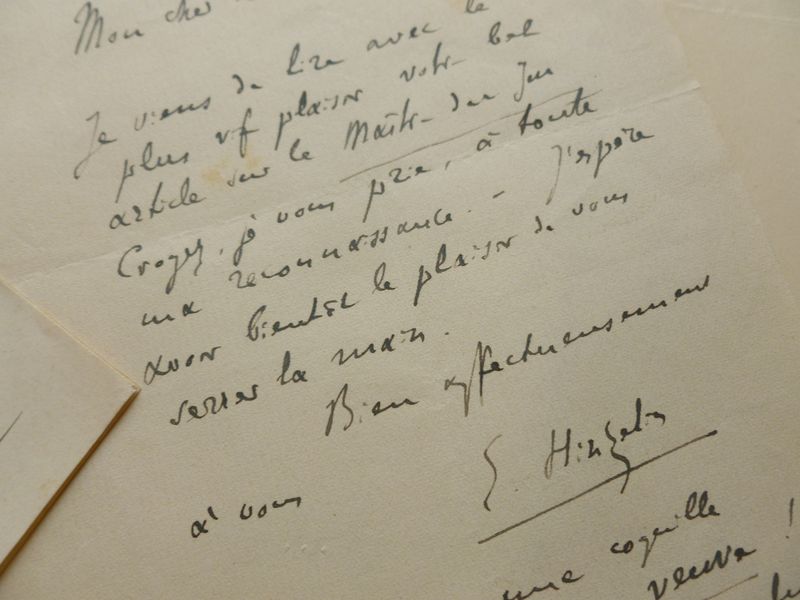 Mon cher
Je viens de lire avec le
plus vif plaisir votre bel
article sur le Maître du Jeu
Croyez, je vous prie, à toute
ma reconnaissance. – J'espère
avoir bientôt le plaisir de vous
serrer la main.
Bien affectueusement
à vous
E. Hinzelin
une coquille
veuve !